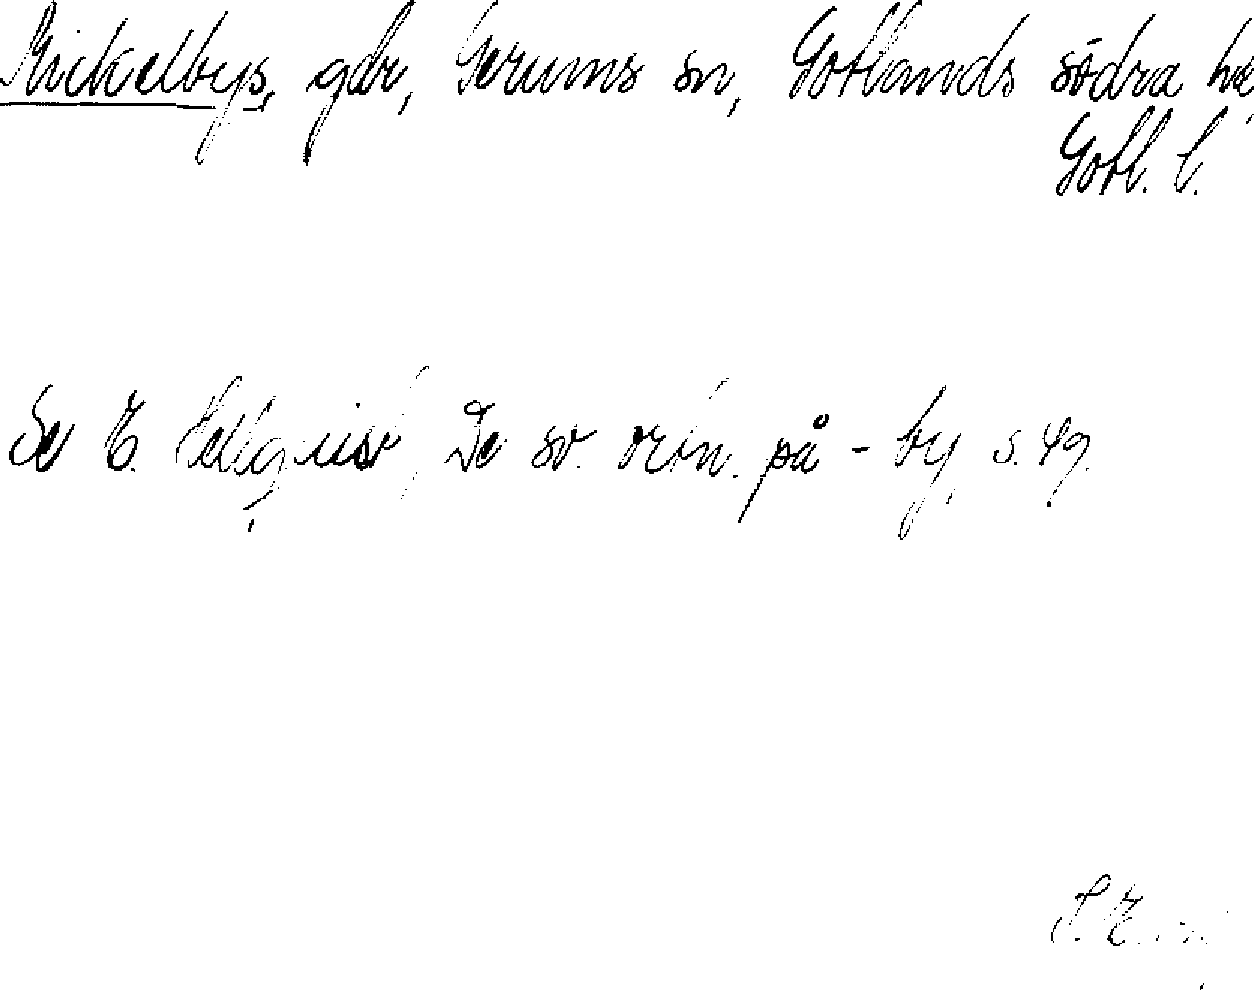 Mickelbys, gdr, Gerums sn, Gotlands södra hd,
Gotl. l.
Se E. Hellquist, De sv. ortn. på -by, s. 49.